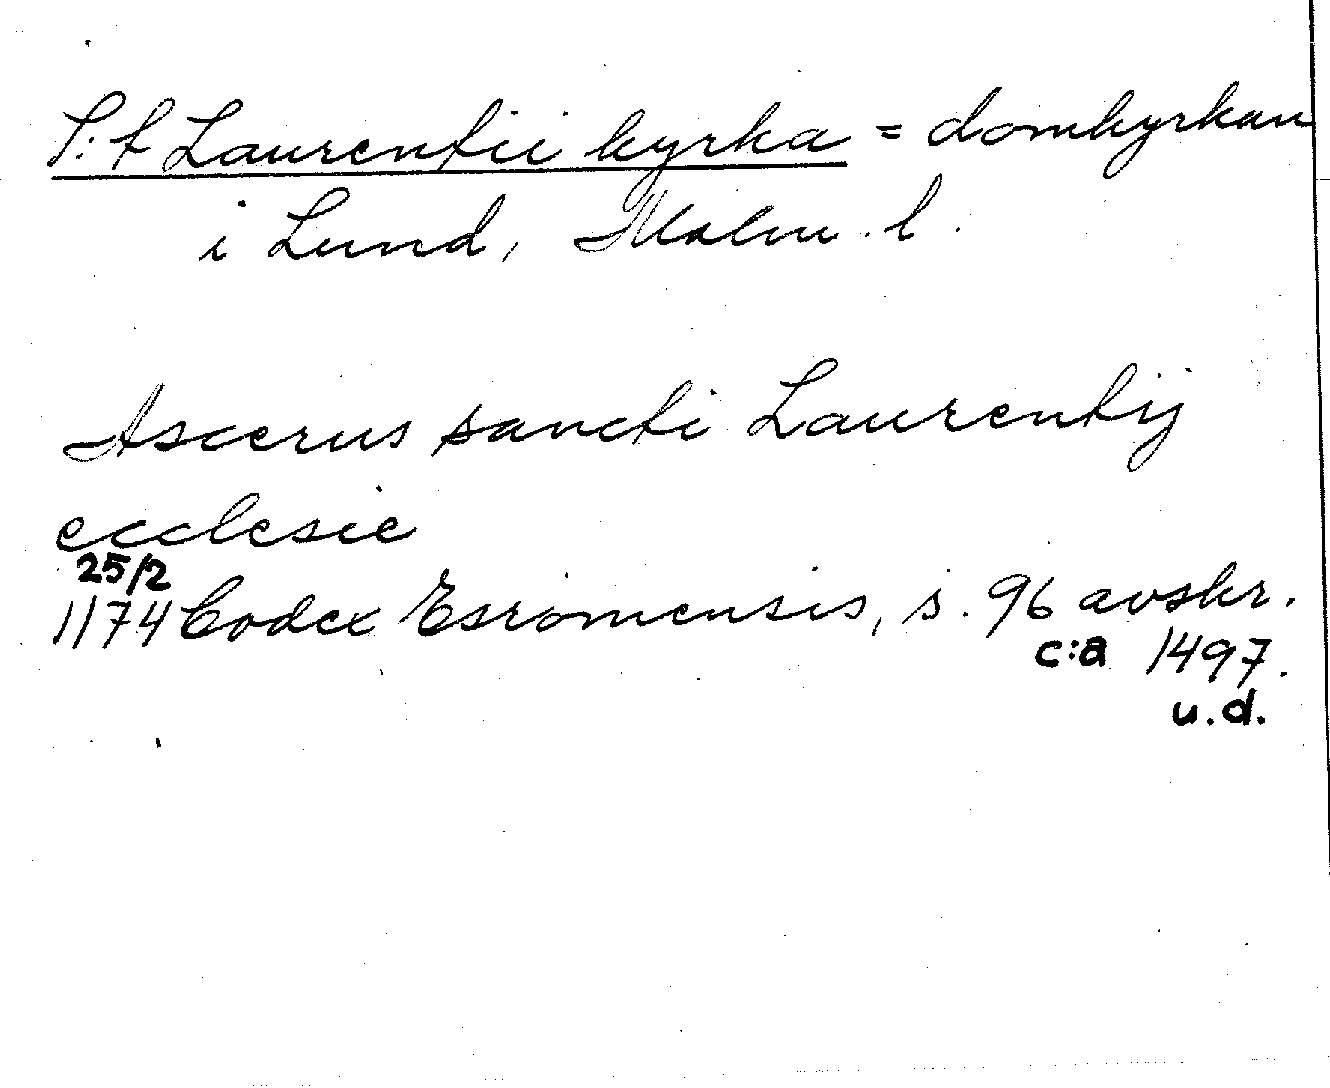 S:t Laurentii kyrka = domkyrkan
i Lund, Malm. l.
Ascerus sancti Laurentij
ecclesie
25/2
1174 Codex Esromensis, s. 96 avskr.
c:a 1497.
u.d.